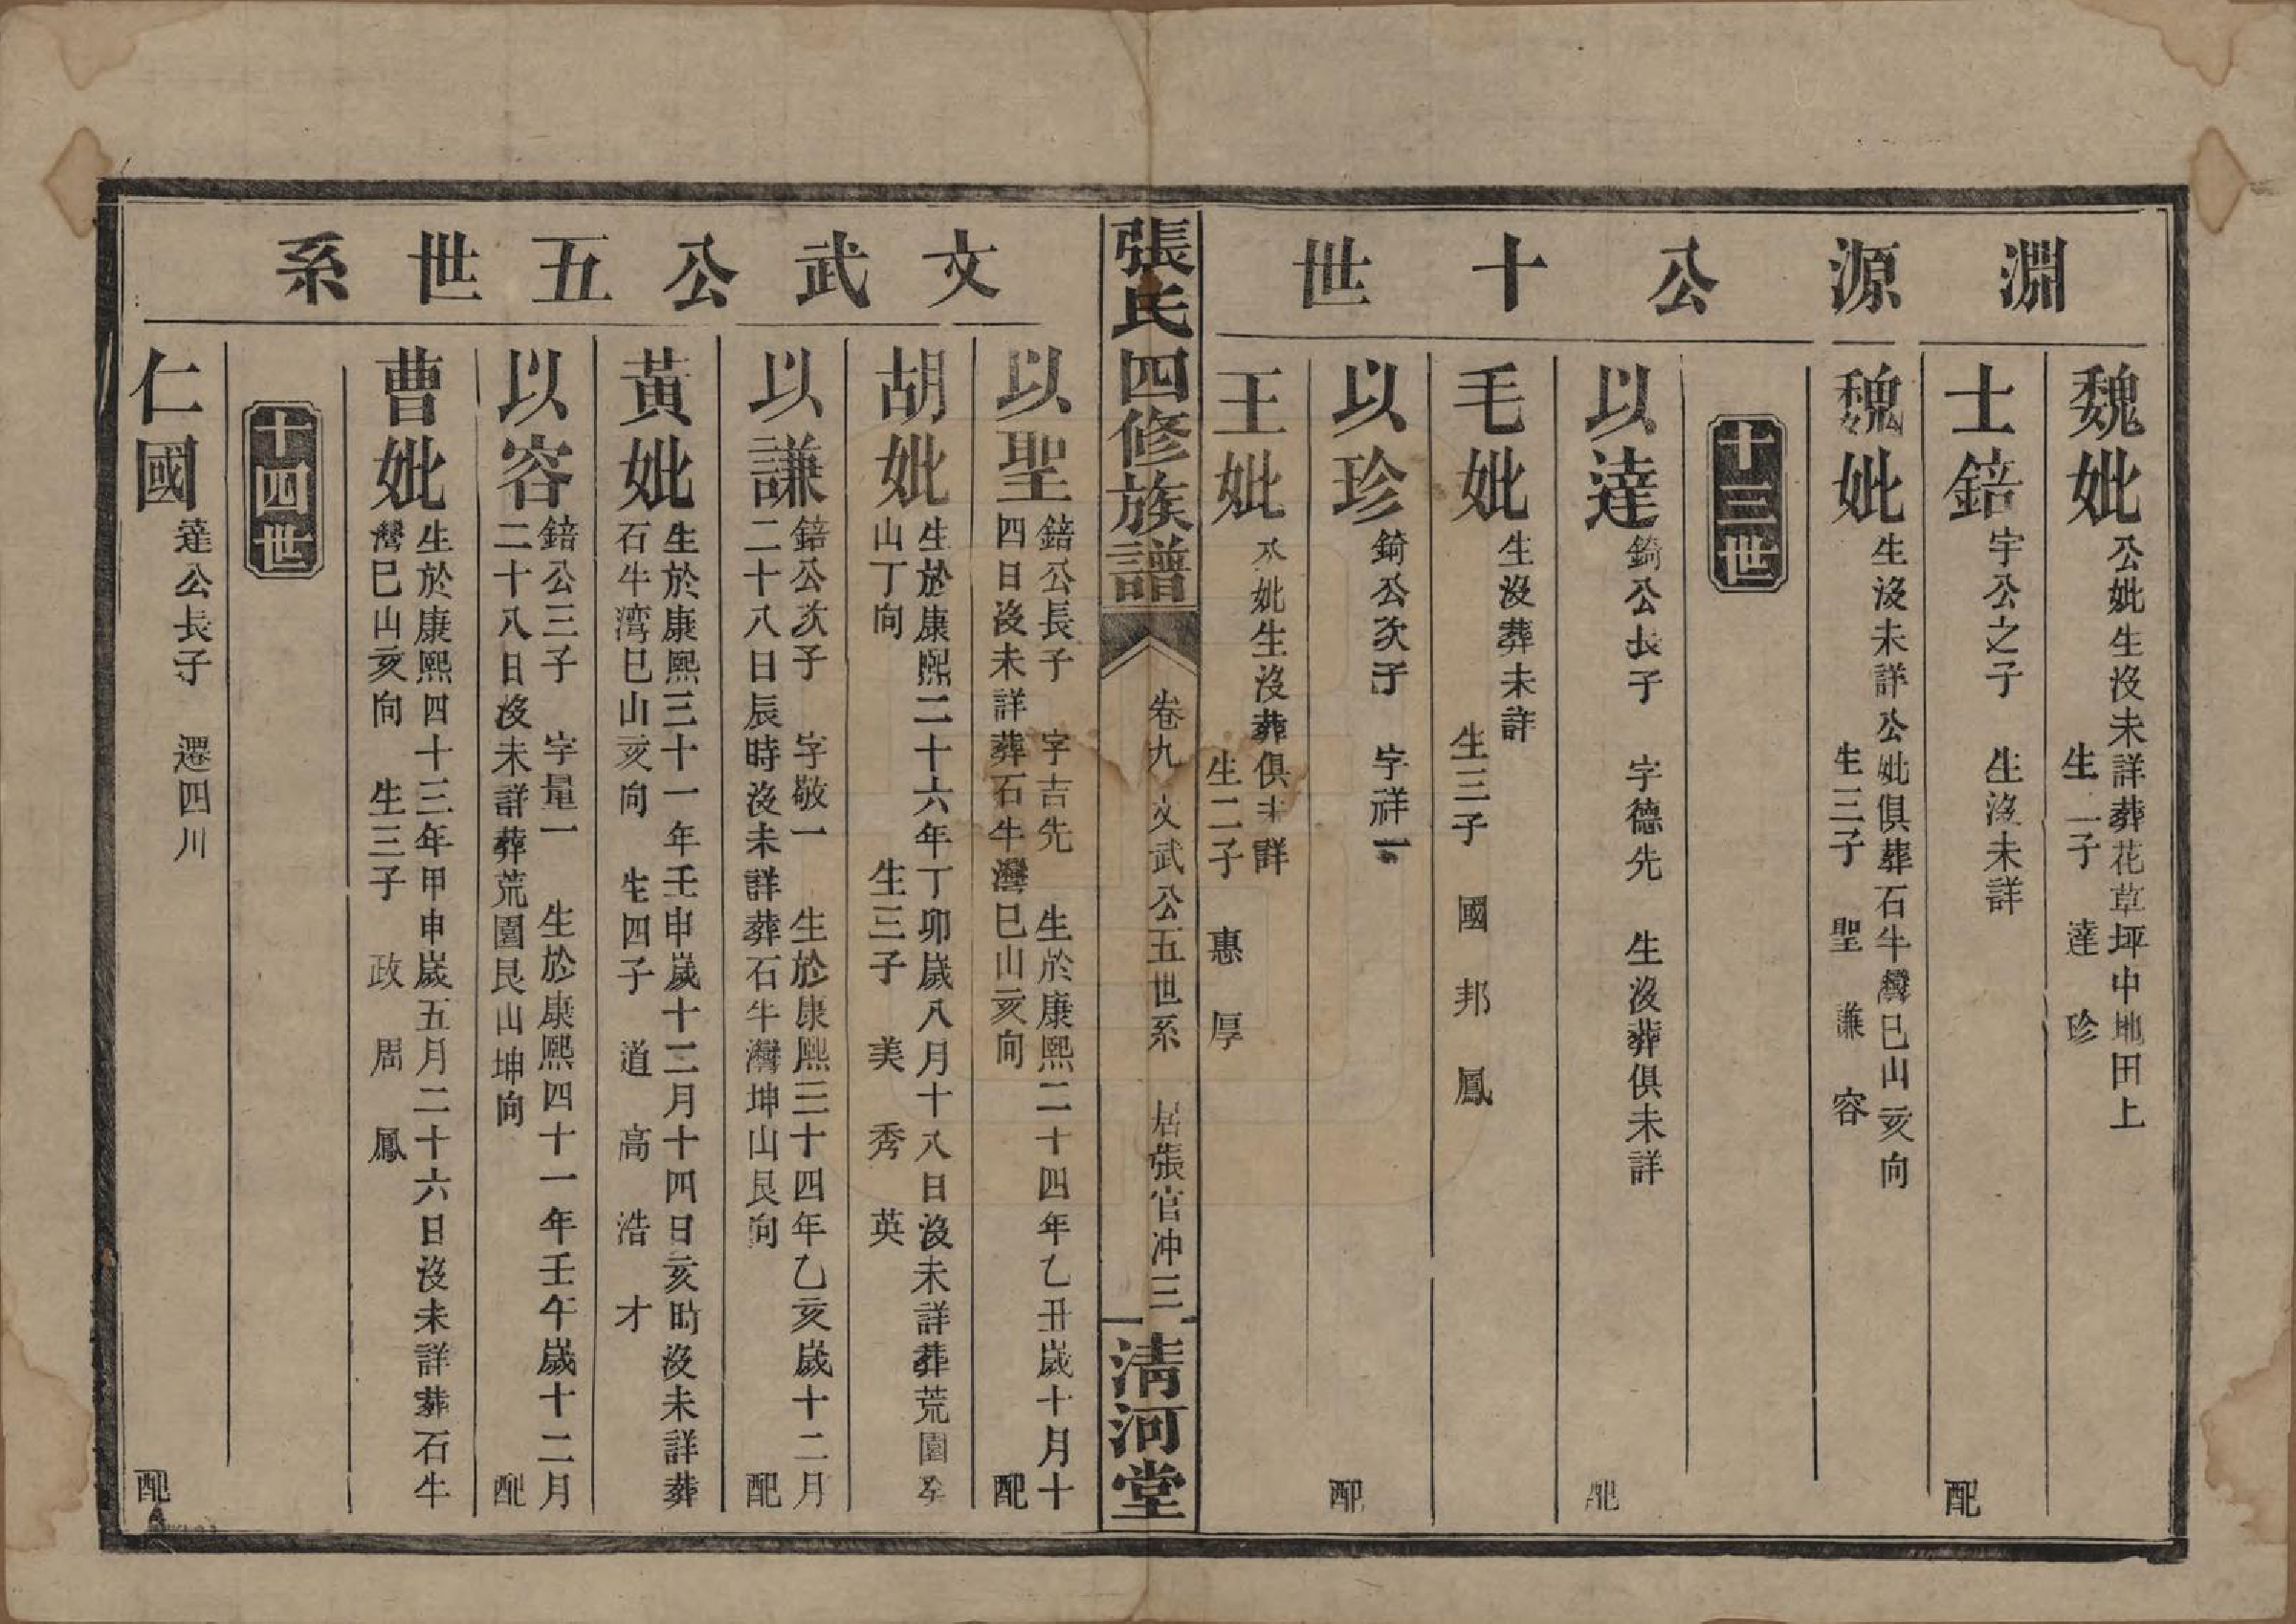 淵源公十世
魏妣
公妣生沒未詳葬花草坪中地田上
生二子 達 珍
士錇
宇公之子 生沒未詳
配
魏妣
生沒未詳公妣俱葬石牛灣巳山亥向
生三子 聖 謙 容
十三世
以達
錡公長子 字德先 生沒葬俱未詳
配
毛妣
生沒葬未詳
生三子 國 邦 鳳
以珍
錡公次子 字祥一
配
王妣
公妣生沒葬俱未詳
生二子 惠 厚
張氏四修族譜
卷九 文武公五世系 居張官冲 三
清河堂
文武公五世系
以聖
錇公長子 字吉先 生於康熙二十四年乙丑歲十月十
四日沒未詳葬石牛灣巳山亥向
配
胡妣
生於康熙二十六年丁卯歲八月十八日沒未詳葬荒園癸
山丁向 生三子 美 秀 英
以謙
錇公次子 字敬一 生於康熙三十四年乙亥歲十二月
二十八日辰時沒未詳葬石牛灣坤山艮向
配
黃妣
生於康熙三十一年壬申歲十二月十四日亥時沒未詳葬
石牛湾巳山亥向 生四子 道 高 浩 才
以容
錇公三子 字量一 生於康熙四十一年壬午歲十二月
二十八日沒未詳葬荒園艮山坤向
配
曹妣
生於康熙四十三年甲申歲五月二十六日沒未詳葬石牛
灣巳山亥向 生三子 政 周 鳳
十四世
仁國
達公長子 遷四川
配